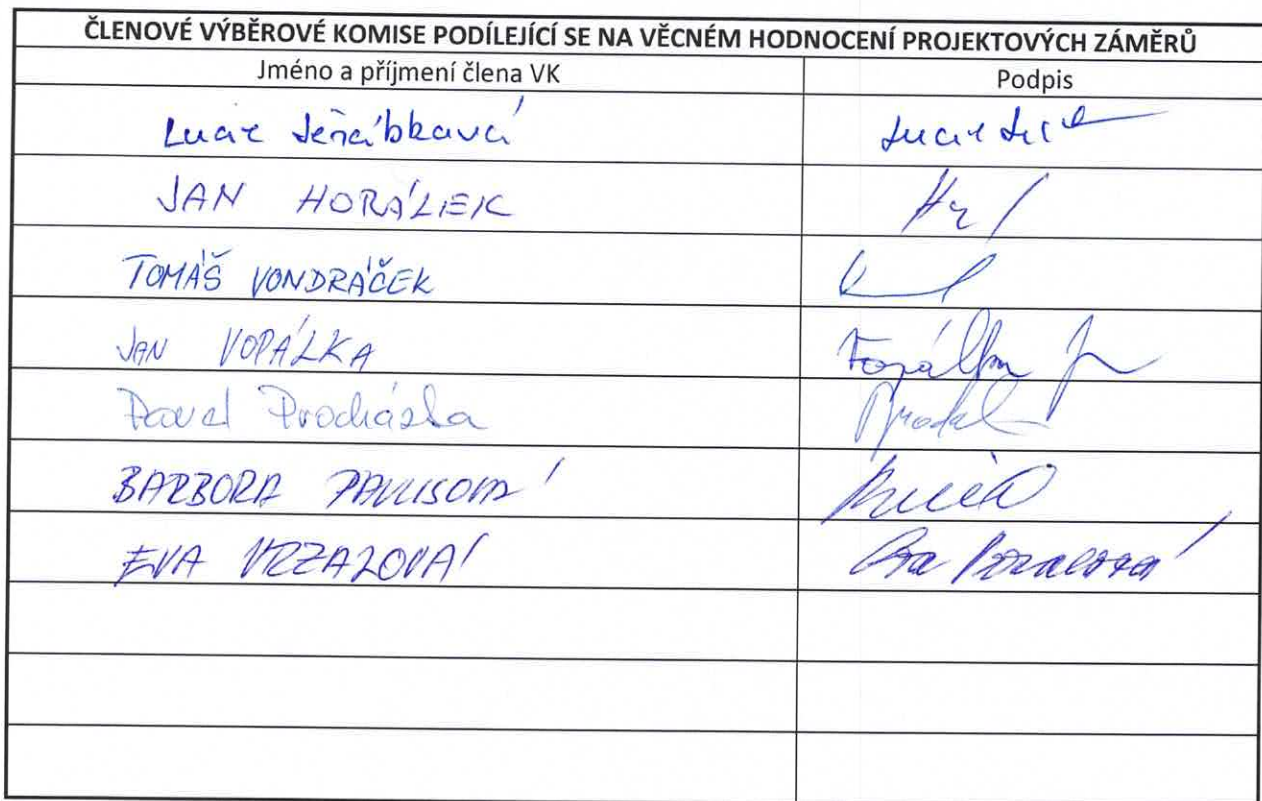 ČLENOVÉ VÝBĚROVÉ KOMISE PODÍLEJÍCÍ SE NA VĚCNÉM HODNOCENÍ PROJEKTOVÝCH ZÁMĚRŮ
Jméno a příjmení člena VK Podpis
Lucie Jeřábková
JAN HORÁLEK
TOMÁŠ VONDRÁČEK
JAN VOPÁLKA Vopálka J
Pavel Procházka
BARBORA
EVA VRZALOVÁ Eva Vrzalová